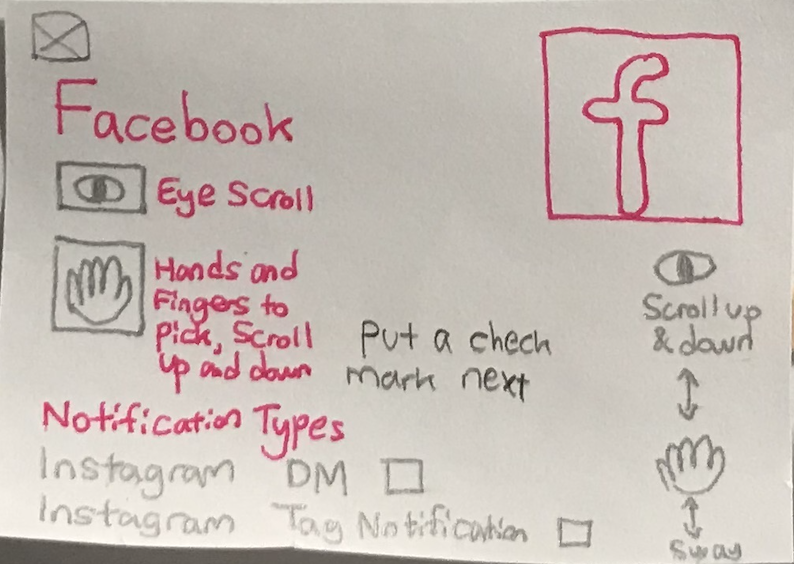 Facebook
f
Eye Scroll
Hands and
Fingers to
pick, Scroll
Up and down
put a check
mark next
Notification Types
Instagram DM
Instagram Tag Notification
Scroll up
& down
Sway